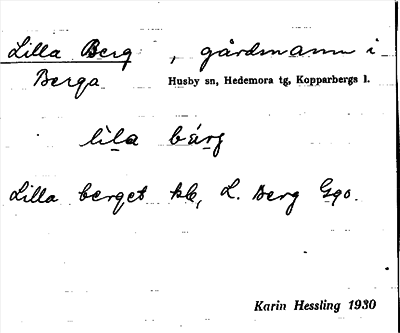 Lilla Berg , gårdsnamn i
Berga Husby sn, Hedemora tg, Kopparbergs l.
lila bärg
Lilla berget kb, L. Berg Gqo.
Karin Hessling 1930